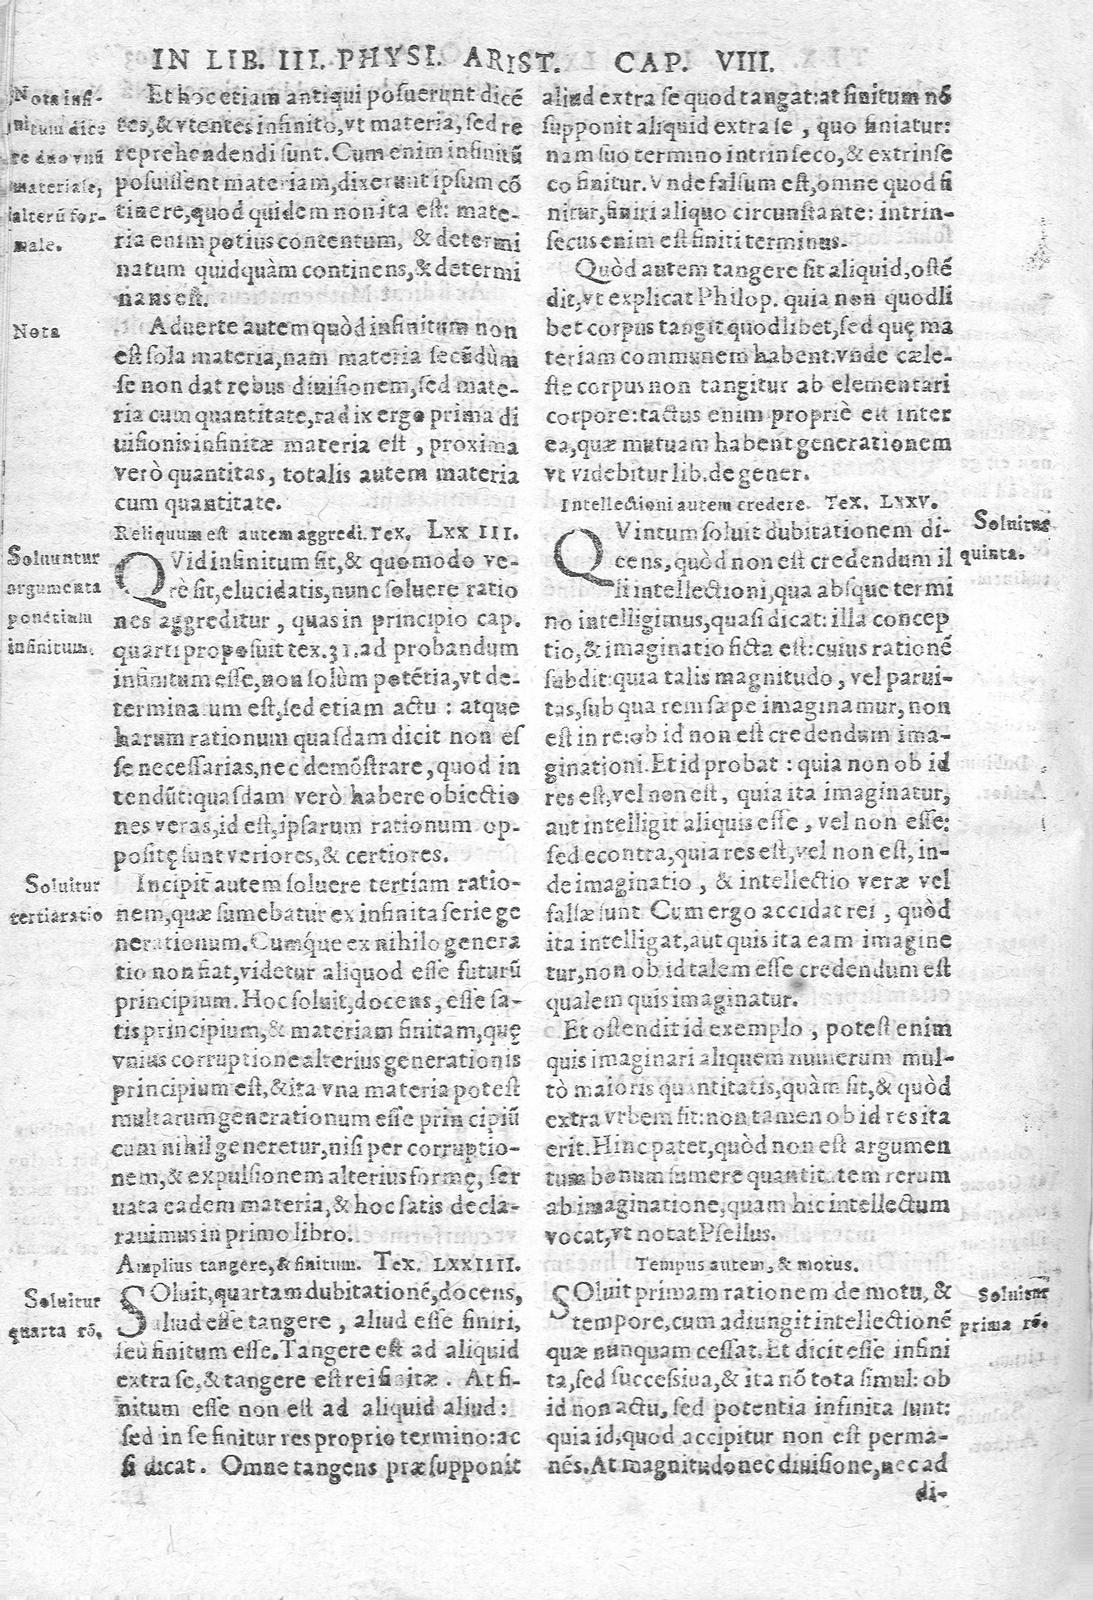 IN LIB. III. PHYSI. ARIST. CAP. VIII.
Nota infi-
nitum dice
re duo vnũ
materiale,
alterũ for-
male.
Et hoc etiam antiqui posuerunt dicẽ
tes, & vtentes infinito, vt materia, sed re
reprehendendi sunt. Cum enim infinitũ
posuissent materiam, dixerunt ipsum cõ
tinere, quod quidem non ita est: mate-
ria enim potius contentum, & determi
natum quidquàm continens, & determi
nans est.
Nota
Aduerte autem quòd infinitum non
est sola materia, nam materia secũdùm
se non dat rebus diuisionem, sed mate-
ria cum quantitate, radix ergo prima di
uisionis infinitæ materia est, proxima
verò quantitas, totalis autem materia
cum quantitate.
Reliquum est autem aggredi. Tex. LXXIII.
Soluuntur
argumenta
ponētium
infinitum.
QVid infinitum sit, & quomodo ve-
rè sit, elucidatis, nunc soluere ratio
nes aggreditur, quas in principio cap.
quarti proposuit tex. 31. ad probandum
infinitum esse, non solùm potẽtia, vt de-
terminatum est, sed etiam actu: atque
harum rationum quasdam dicit non es
se necessarias, nec demõstrare, quod in
tendũt: quasdam verò habere obiectio
nes veras, id est, ipsarum rationum op-
positę sunt veriores, & certiores.
Soluitur
tertia ratio
Incipit autem soluere tertiam ratio-
nem, quæ sumebatur ex infinita serie ge
nerationum. Cumq́ue ex nihilo genera
tio non fiat, videtur aliquod esse futurũ
principium. Hoc soluit, docens, esse sa-
tis principium, & materiam finitam, quę
vnius corruptione alterius generationis
principium est, & ita vna materia potest
multarum generationum esse principiũ
cum nihil generetur, nisi per corruptio-
nem, & expulsionem alterius formę, ser
uata eadem materia, & hoc satis declà-
rauimus in primo libro.
Amplius tangere, & finitum. Tex. LXXIIII.
Soluitur
quarta rõ.
SOluit, quartam dubitationẽ, docens,
aliud esse tangere, aliud esse finiri,
seù finitum esse. Tangere est ad aliquid
extra se, & tangere est rei finitæ. At fi-
nitum esse non est ad aliquid aliud:
sed in se finitur res proprio termino: ac
si dicat. Omne tangens præsupponit
aliud extra se quod tangat: at finitum nõ
supponit aliquid extra se, quo finiatur:
nam suo termino intrinseco, & extrinse
co finitur. Vnde falsum est, omne quod fi
nitur, finiri aliquo circunstante: intrin-
secus enim est finiti terminus.
Quòd autem tangere sit aliquid, ostẽ
dit, vt explicat Philop. quia non quodli
bet corpus tangit quodlibet, sed quę ma
teriam communem habent: vnde cæle-
ste corpus non tangitur ab elementari
corpore: tactus enim propriè est inter
ea, quæ mutuam habent generationem
vt videbitur lib. de gener.
Intellectioni autem credere. Tex. LXXV.
Soluitur
quinta.
QVintum soluit dubitationem di-
cens, quòd non est credendum il
li intellectioni, qua absque termi
no intelligimus, quasi dicat: illa concep
tio, & imaginatio ficta est: cuius rationẽ
subdit: quia talis magnitudo, vel parui-
tas, sub qua rem sæpe imaginamur, non
est in re: ob id non est credendum ima-
ginationi. Et id probat: quia non ob id
res est, vel non est, quia ita imaginatur,
aut intelligit aliquis esse, vel non esse:
sed econtra, quia res est, vel non est, in-
de imaginatio, & intellectio veræ vel
falsæ sunt Cum ergo accidat rei, quòd
ita intelligat, aut quis ita eam imagine
tur, non ob id talem esse credendum est
qualem quis imaginatur.
Et ostendit id exemplo, potest enim
quis imaginari aliquem numerum mul-
tò maioris quantitatis, quàm sit, & quòd
extra vrbem sit: non tamen ob id res ita
erit. Hinc patet, quòd non est argumen
tum bonum sumere quantitatem rerum
ab imaginatione, quam hic intellectum
vocat, vt notat Psellus.
Tempus autem, & motus.
Soluitur
prima rõ.
SOluit primam rationem de motu, &
tempore, cum adiungit intellectionẽ
quæ nunquam cessat. Et dicit esse infini
ta, sed successiua, & ita nõ tota simul: ob
id non actu, sed potentia infinita sunt:
quia id, quod accipitur non est permà-
nẽs. At magnitudo nec diuisione, nec ad
di-